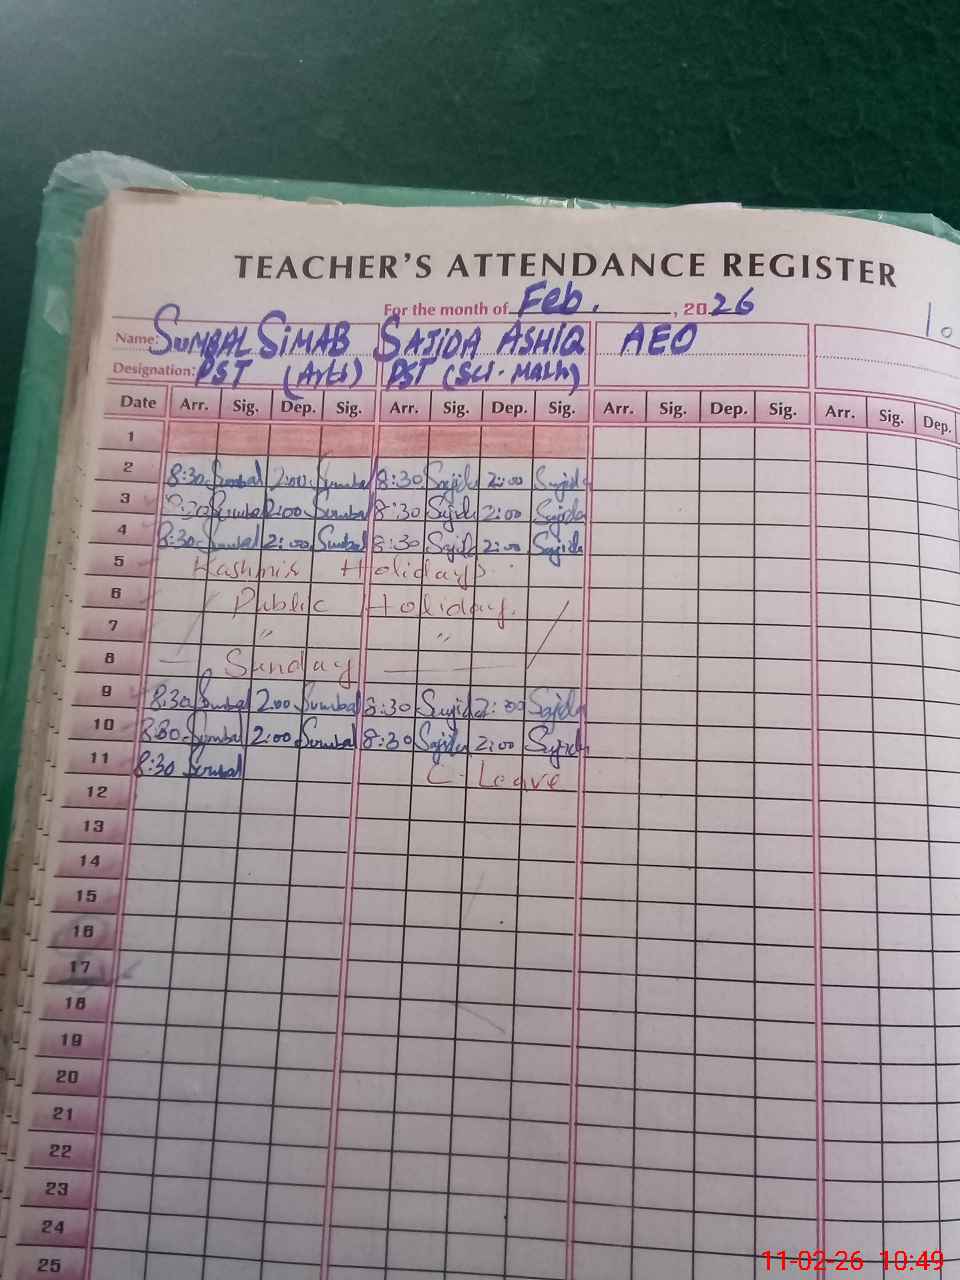 TEACHER'S ATTENDANCE REGISTER
For the month of Feb. , 2026
Name: SUMBAL SIMAB SAJIDA ASHIQ AEO
Designation: PST (Arts) PST (Sci-Math)
Date Arr. Sig. Dep. Sig. Arr. Sig. Dep. Sig. Arr. Sig. Dep. Sig. Arr. Sig. Dep.
1
2 8:30 Sumbal 2:00 Sumbal 8:30 Sajida 2:00 Sajida
3 8:30 Sumbal 2:00 Sumbal 8:30 Sajida 2:00 Sajida
4 8:30 Sumbal 2:00 Sumbal 8:30 Sajida 2:00 Sajida
5 Kashmir Holiday
6 Public Holiday.
7 " "
8 Sunday
9 8:30 Sumbal 2:00 Sumbal 8:30 Sajida 2:00 Sajida
10 8:30 Sumbal 2:00 Sumbal 8:30 Sajida 2:00 Sajida
11 8:30 Sumbal C-Leave
12
13
14
15
16
17
18
19
20
21
22
23
24
25
11-02-26 10:49